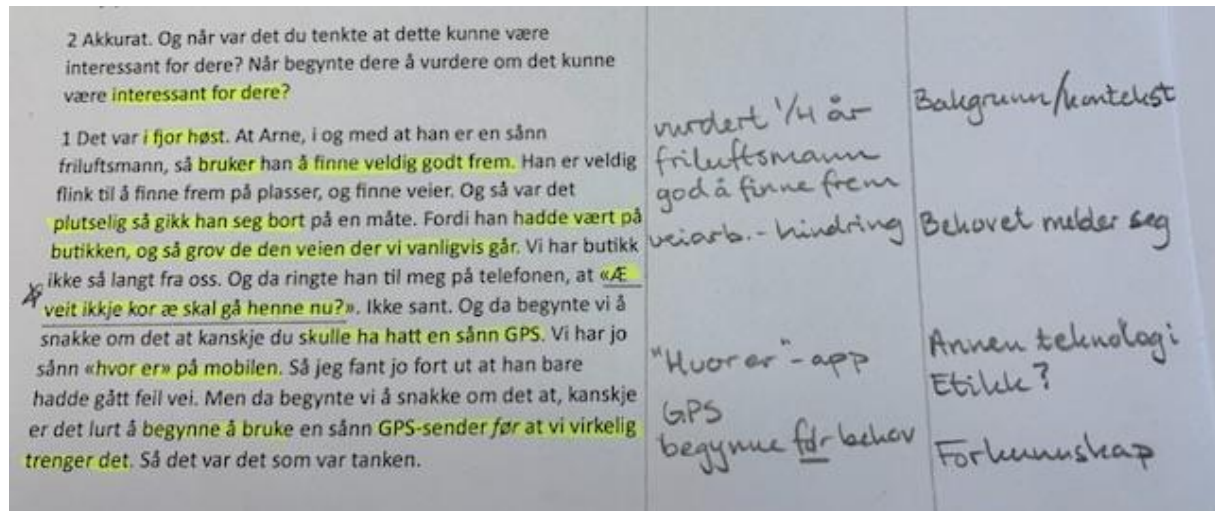 2 Akkurat. Og når var det du tenkte at dette kunne være
interessant for dere? Når begynte dere å vurdere om det kunne
være interessant for dere?
1 Det var i fjor høst. At Arne, i og med at han er en sånn
friluftsmann, så bruker han å finne veldig godt frem. Han er veldig
flink til å finne frem på plasser, og finne veier. Og så var det
plutselig så gikk han seg bort på en måte. Fordi han hadde vært på
butikken, og så grov de den veien der vi vanligvis går. Vi har butikk
ikke så langt fra oss. Og da ringte han til meg på telefonen, at «Æ
veit ikkje kor æ skal gå henne nu?». Ikke sant. Og da begynte vi å
snakke om det at kanskje du skulle ha hatt en sånn GPS. Vi har jo
sånn «hvor er» på mobilen. Så jeg fant jo fort ut at han bare
hadde gått feil vei. Men da begynte vi å snakke om det at, kanskje
er det lurt å begynne å bruke en sånn GPS-sender før at vi virkelig
trenger det. Så det var det som var tanken.
vurdert 1/4 år
friluftsmann
god å finne frem
veiarb. - hindring
"Hvor er"-app
GPS
begynne før behov
Bakgrunn/kontekst
Behovet melder seg
Annen teknologi
Etikk?
Forkunnskap